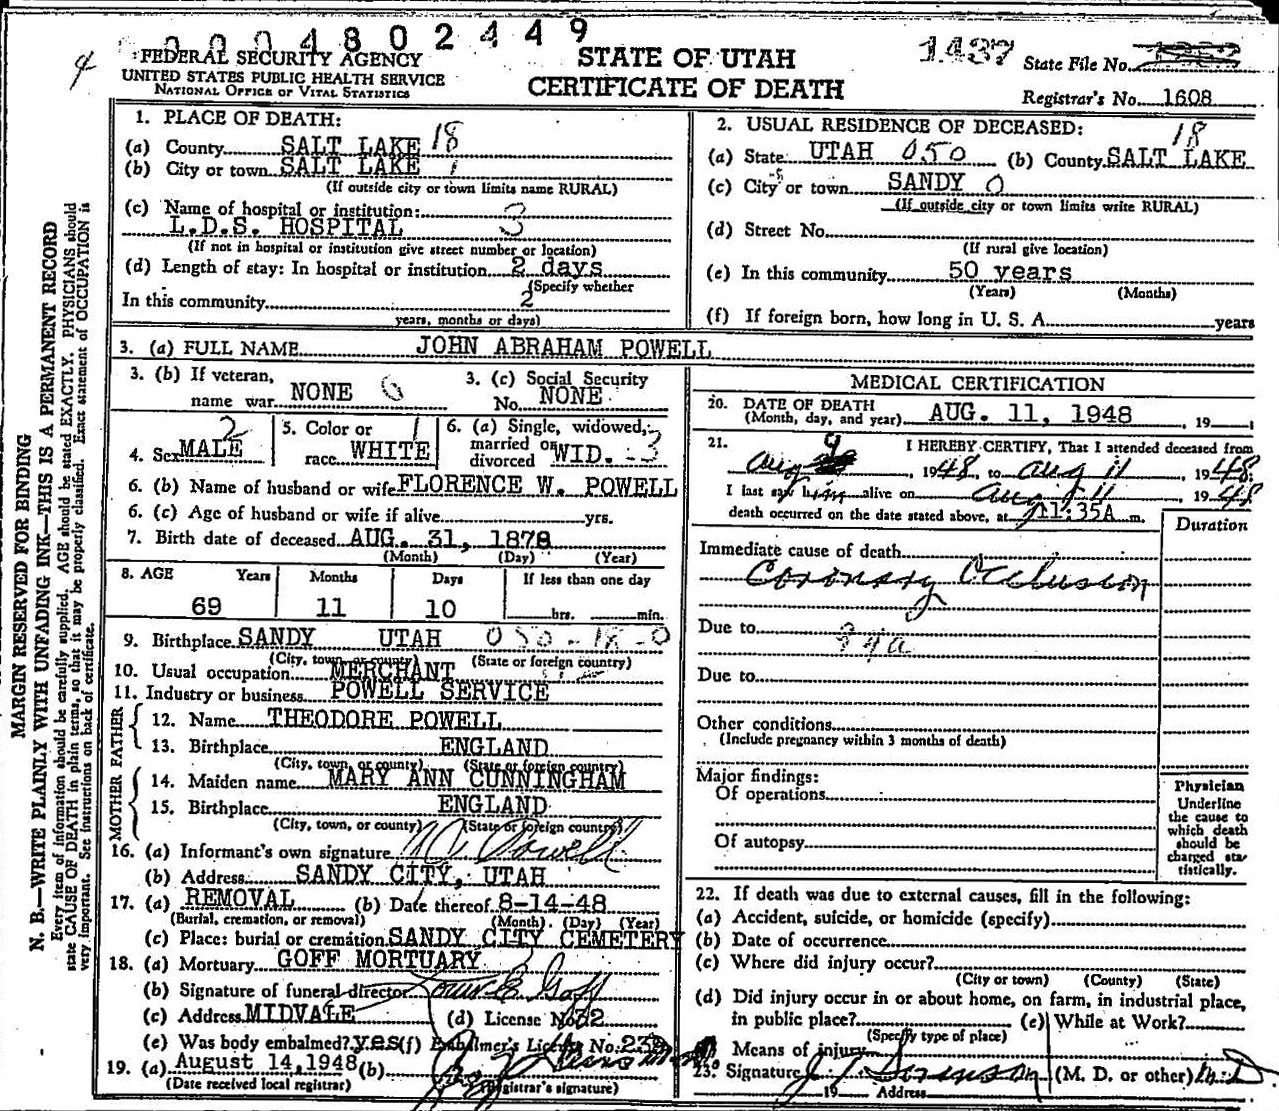 0004802449
4
FEDERAL SECURITY AGENCY
UNITED STATES PUBLIC HEALTH SERVICE
NATIONAL OFFICE OF VITAL STATISTICS
STATE OF UTAH
CERTIFICATE OF DEATH
1437 State File No.
Registrar's No. 1608
MARGIN RESERVED FOR BINDING
N. B.—WRITE PLAINLY WITH UNFADING INK—THIS IS A PERMANENT RECORD
Every item of information should be carefully supplied. AGE should be stated EXACTLY. PHYSICIANS should
state CAUSE OF DEATH in plain terms, so that it may be properly classified. Exact statement of OCCUPATION is
very important. See instructions on back of certificate.
1. PLACE OF DEATH:
(a) County SALT LAKE 18
(b) City or town SALT LAKE 1
(If outside city or town limits name RURAL)
(c) Name of hospital or institution:
L.D.S. HOSPITAL 3
(If not in hospital or institution give street number or location)
(d) Length of stay: In hospital or institution 2 days
(Specify whether
In this community 2
years, months or days)
2. USUAL RESIDENCE OF DECEASED: 18
(a) State UTAH 050 (b) County SALT LAKE
(c) City or town SANDY 0
(If outside city or town limits write RURAL)
(d) Street No.
(If rural give location)
(e) In this community 50 years
(Years) (Months)
(f) If foreign born, how long in U. S. A. years
3. (a) FULL NAME JOHN ABRAHAM POWELL
3. (b) If veteran, name war NONE
3. (c) Social Security No. NONE
4. Sex MALE 2
5. Color or race WHITE 1
6. (a) Single, widowed, married or divorced WID. 3
6. (b) Name of husband or wife FLORENCE W. POWELL
6. (c) Age of husband or wife if alive yrs.
7. Birth date of deceased AUG. 31, 1878
(Month) (Day) (Year)
8. AGE Years Months Days If less than one day
69 11 10 hrs. min.
9. Birthplace SANDY UTAH 050-18-0
(City, town, or county) (State or foreign country)
10. Usual occupation MERCHANT
11. Industry or business POWELL SERVICE
FATHER
12. Name THEODORE POWELL
13. Birthplace ENGLAND
(City, town, or county) (State or foreign country)
MOTHER
14. Maiden name MARY ANN CUNNINGHAM
15. Birthplace ENGLAND
(City, town, or county) (State or foreign country)
16. (a) Informant's own signature Powell
(b) Address SANDY CITY, UTAH
17. (a) REMOVAL (b) Date thereof 8-14-48
(Burial, cremation, or removal) (Month) (Day) (Year)
(c) Place: burial or cremation SANDY CITY CEMETERY
18. (a) Mortuary GOFF MORTUARY
(b) Signature of funeral director Goff
(c) Address MIDVALE (d) License No. 32
(e) Was body embalmed? yes (f) Embalmer's License No.
19. (a) August 14, 1948 (b)
(Date received local registrar) (Registrar's signature)
MEDICAL CERTIFICATION
20. DATE OF DEATH
(Month, day, and year) AUG. 11, 1948, 19
21. I HEREBY CERTIFY, That I attended deceased from
Aug 9, 1948 to Aug 11, 1948
I last saw him alive on Aug 11, 1948
death occurred on the date stated above, at 11:35A m.
Duration
Immediate cause of death
Coronary Occlusion
Due to 94a
Due to
Other conditions
(Include pregnancy within 3 months of death)
Major findings:
Of operations
Of autopsy
Physician
Underline
the cause to
which death
should be
charged sta-
tistically.
22. If death was due to external causes, fill in the following:
(a) Accident, suicide, or homicide (specify)
(b) Date of occurrence
(c) Where did injury occur?
(City or town) (County) (State)
(d) Did injury occur in or about home, on farm, in industrial place,
in public place? (e) While at Work?
(Specify type of place)
Means of injury
23. Signature J Sorenson (M. D. or other) M.D.
19 Address